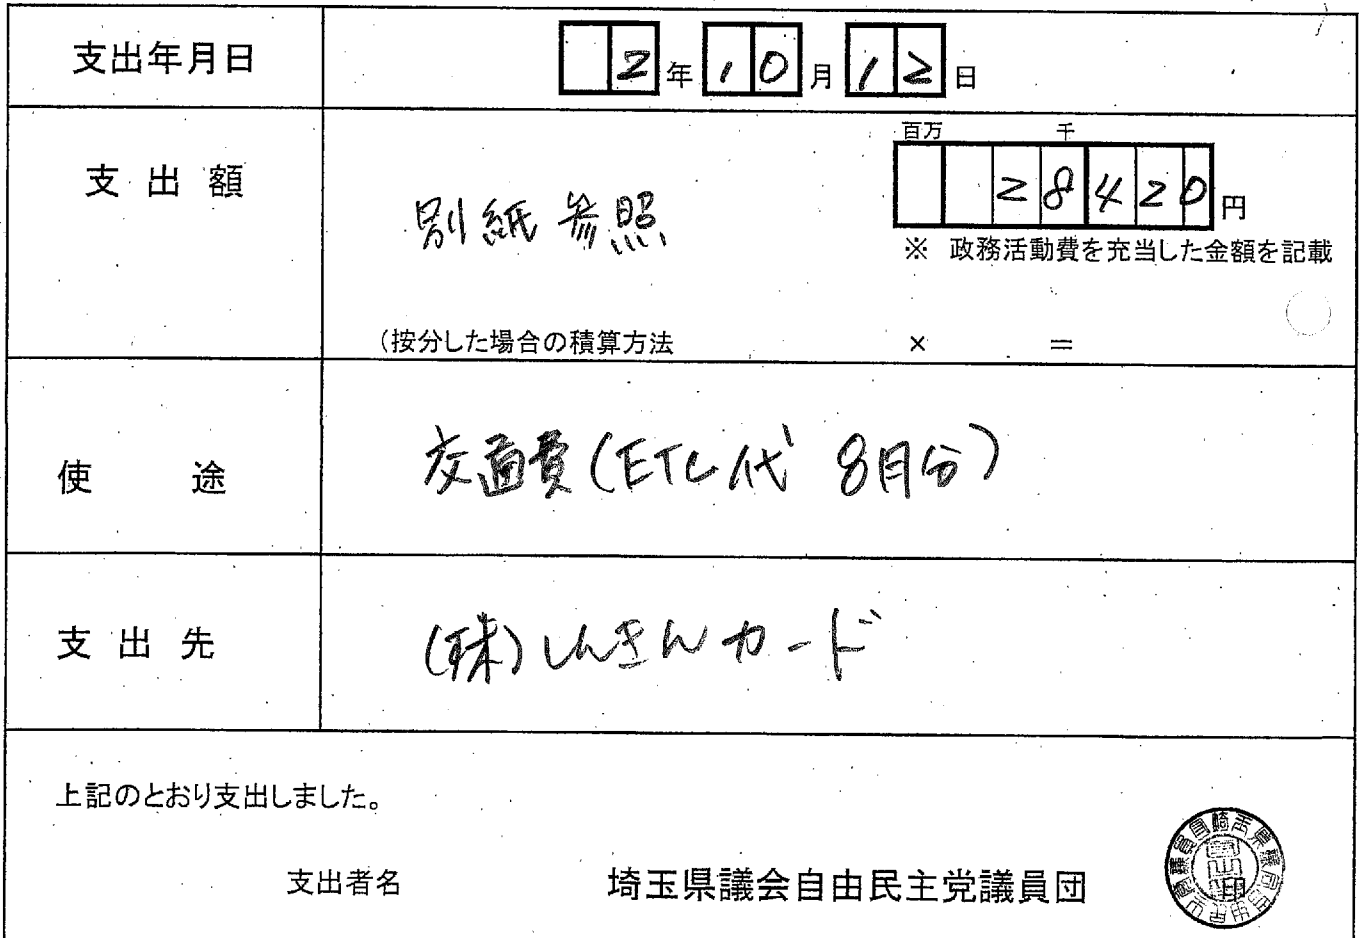 支出年月日 2年10月12日
百万 千
支出額 別紙参照 28420円
※ 政務活動費を充当した金額を記載
(按分した場合の積算方法 × =
使途 交通費(ETC代 8月分)
支出先 (株)しんきんカード
上記のとおり支出しました。
支出者名 埼玉県議会自由民主党議員団 印